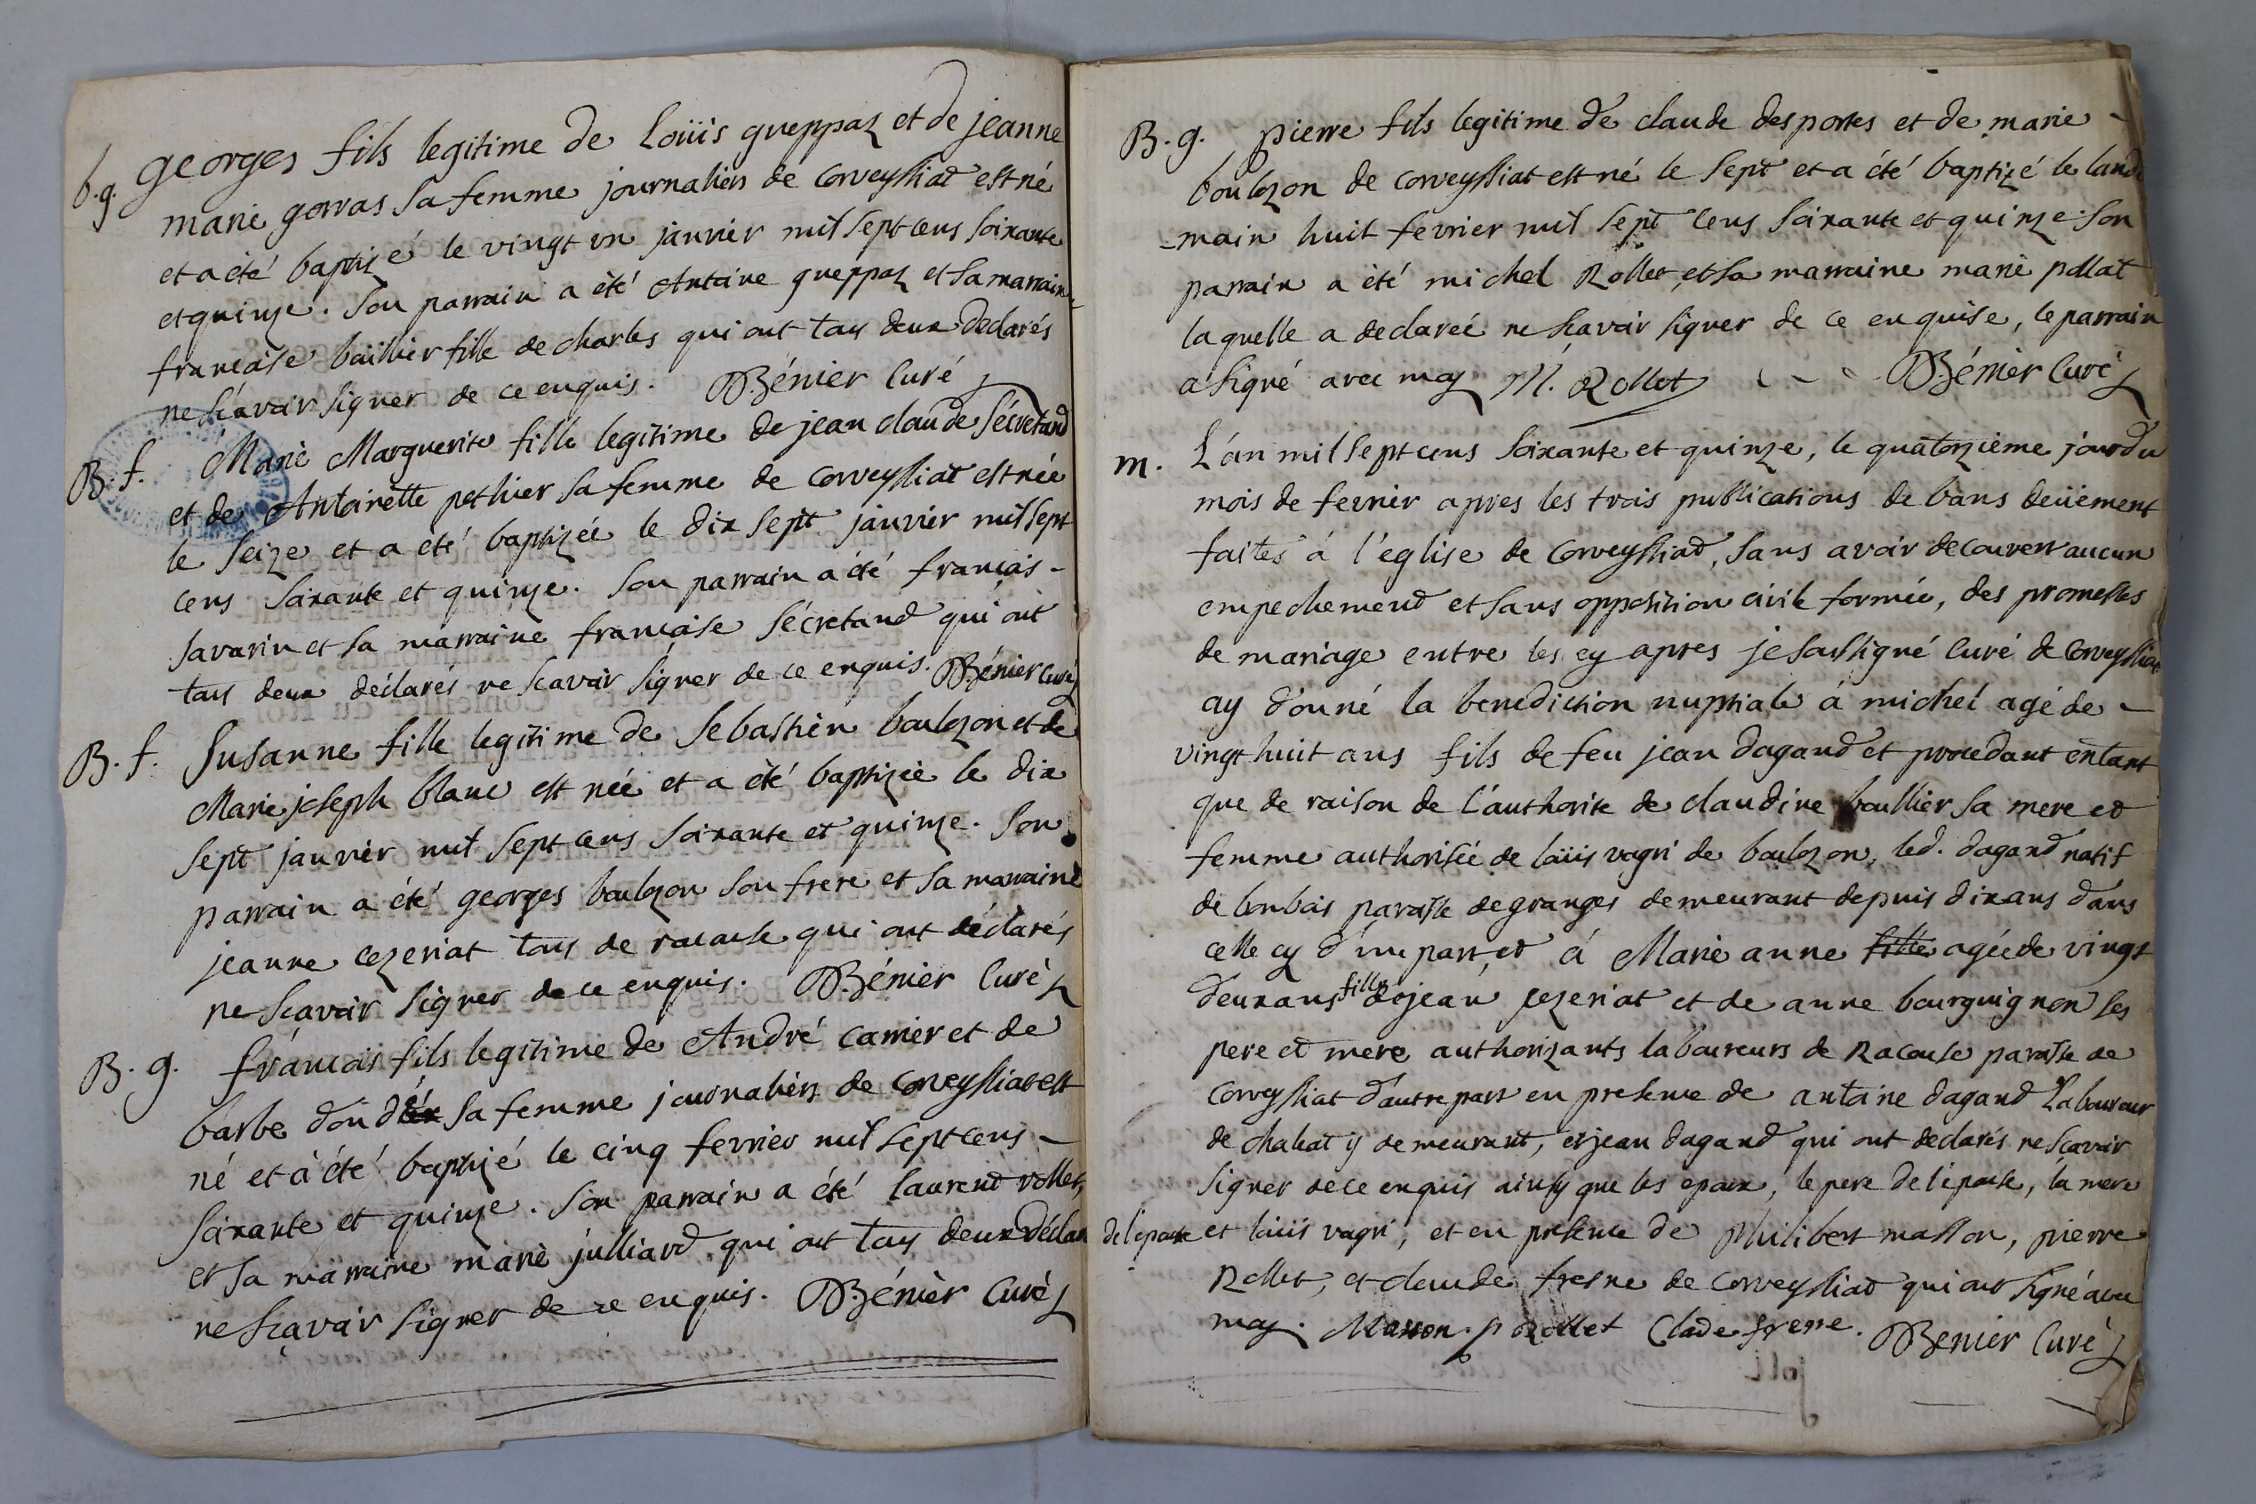 b.g. georges fils legitime de Loüis gueppaz et de jeanne
marie gorras sa femme journaliers de Corveyssiat est né
et a été baptizé le vingt un janvier mil sept cens soixante
et quinze. Son parrain a été Antoine gueppaz et sa marraine
francaise baillier fille de charles qui ont tous deux declarés
ne sçavoir signer de ce enquis. Bénier Curé
B. f. Marie Marguerite fille legitime de jean claude Sécretand
et de Antoinette pethier sa femme de Corveyssiat est née
le seize et a été baptizée le dix sept janvier mil sept
cens soixante et quinze. Son parrain a été francois -
Savarin et sa marraine francaise Sécretand qui ont
tous deux déclarés ne scavoir signer de ce enquis. Bénier Curé
B. f. Susanne fille legitime de Sebastien boulozon et de
Marie joseph blanc est née et a été baptizée le dix
sept janvier mil sept cens soixante et quinze. Son
parrain a été georges boulozon son frere et sa marraine
jeanne cezeriat tous de racouse qui ont déclarés
ne scavoir signer de ce enquis. Bénier Curé
B. g. françois fils legitime de André carrier et de
barbe dondé sa femme journaliers de Corveyssiat est
né et à été baptizé le cinq fevrier mil sept cens -
soixante et quinze. Son parrain a été laurend rollet,
et sa marraine marie julliard qui ont tous deux déclarés
ne sçavoir signer de ce enquis. Bénier Curé
B. g. pierre fils legitime de claude desportes et de marie -
boulozon de corveyssiat est né le sept et a été baptizé le lende
-main huit fevrier mil sept cens soixante et quinze. Son
parrain a été michel Rollet, et sa marraine marie pollat
laquelle a declareé ne scavoir signer de ce enquise, le parrain
a signé avec moy M. Rollet Bénier Curé
m. L'an mil sept cens soixante et quinze, le quatorzième jour du
mois de fevrier apres les trois publications de bans deüement
faites á l'eglise de Corveyssiad, sans avoir decouvert aucun
empechemend et sans opposition civile formée, des promesses
de mariage entre les cy apres je soussigné Curé de Corveyssiat
ay donné la benediction nuptiale á michel agé de -
vingt huit ans fils de feu jean dagand et procedant entant
que de raison de l'authorite de claudine baullier sa mere et
femme authorisée de loüis vagri de boulozon, led. dagand natif
de bonbois paroisse de granges demeurant depuis dix ans dans
celle cy d'une part, et á Marie anne fille agée de vingt
deux ans fille de jean cezeriat et de anne bourguignon ses
pere et mere authorizants laboureurs de Racouse paroisse de
Corveyssiat d'autre part en presence de antoine dagand Laboureur
de chaliat y demeurant, et jean dagand qui ont declarés ne sçavoir
signer de ce enquis ainsy que les epoux, le pere de l'epouse, la mere
de l'epouse et loüis vagri, et en presence de philibert masson, pierre
Rollet, et claude fresne de Corveyssiad qui ont signé avec
moy. Masson. p Rollet Clade frene. Benier Curé